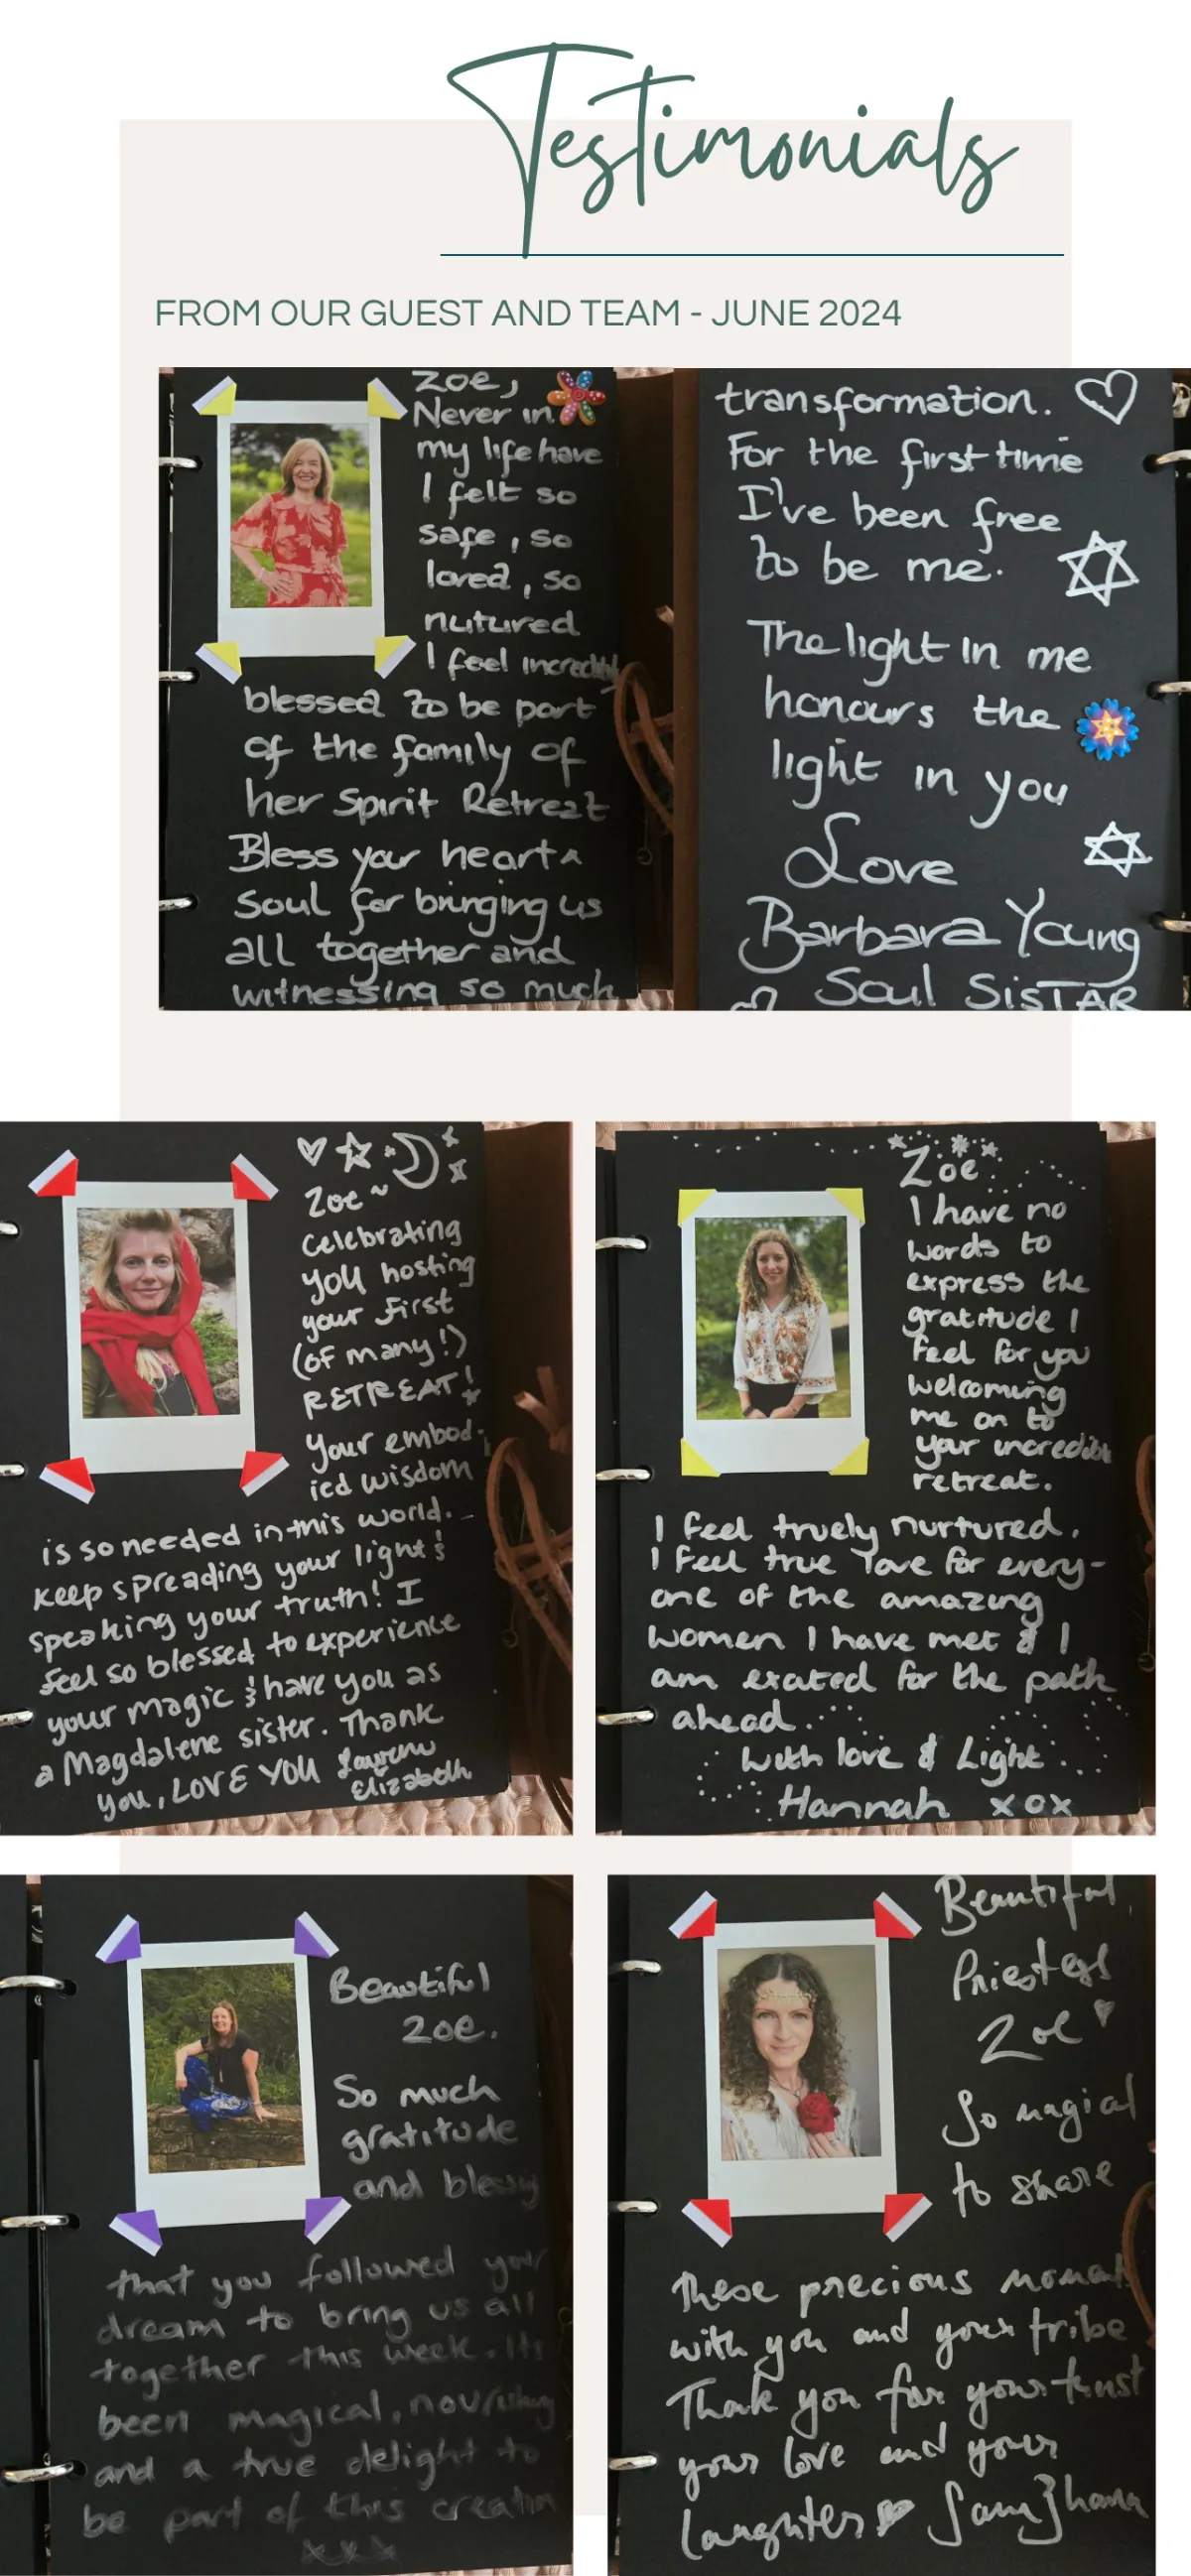 Testimonials
FROM OUR GUEST AND TEAM - JUNE 2024
Zoe,
Never in
my life have
I felt so
safe, so
loved, so
nutured
I feel incredibly
blessed to be part
of the family of
her Spirit Retreat
Bless your heart
Soul for bringing us
all together and
witnessing so much
transformation.
For the first time
I've been free
to be me.
The light in me
honours the
light in you
Love
Barbara Young
Soul SiSTAR
Zoe ~
celebrating
you hosting
your first
(of many!)
RETREAT!
Your embod-
ied wisdom
is so needed in this world.
keep spreading your light &
speaking your truth! I
feel so blessed to experience
your magic & have you as
a Magdalene sister. Thank
you, LOVE YOU Lauren
Elizabeth
Zoe
I have no
words to
express the
gratitude I
feel for you
welcoming
me on to
your incredible
retreat.
I feel truely nurtured.
I feel true love for every-
one of the amazing
women I have met & I
am excited for the path
ahead.
With love & Light
Hannah xox
Beautiful
Zoe.
So much
gratitude
and
that you followed your
dream to bring us all
together this week. Its
been magical, nourishing
and a true delight to
be part of this
xxx
Beautiful,
Priestess
Zoe
So magical
to share
these precious
with you and your tribe
Thank you for your trust
your love and your
laughter